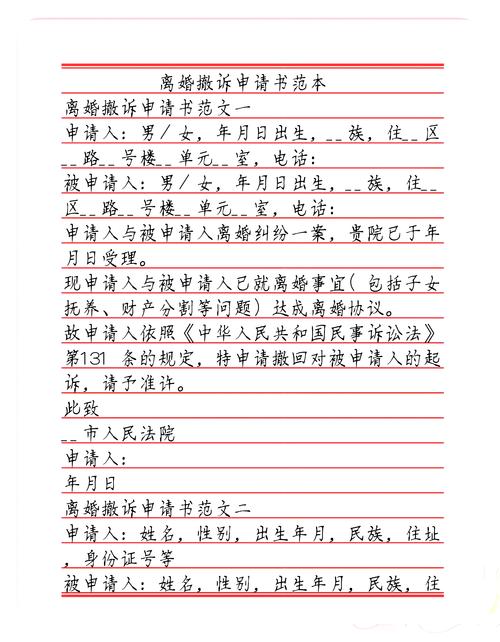 离婚撤诉申请书范本
离婚撤诉申请书范文一
申请人：男/女，年月日出生，__族，住__区
__路__号楼__单元__室，电话：
被申请人：男/女，年月日出生，__族，住__
区__路__号楼__单元__室，电话：
申请人与被申请人离婚纠纷一案，贵院已于年
月日受理。
现申请人与被申请人已就离婚事宜(包括子女
抚养、财产分割等问题)达成离婚协议。
故申请人依照《中华人民共和国民事诉讼法》
第131 条的规定，特申请撤回对被申请人的起
诉，请予准许。
此致
__市人民法院
申请人：
年月日
离婚撤诉申请书范文二
申请人：姓名，性别，出生年月，民族，住址
，身份证号等
被申请人：姓名，性别，出生年月，民族，住